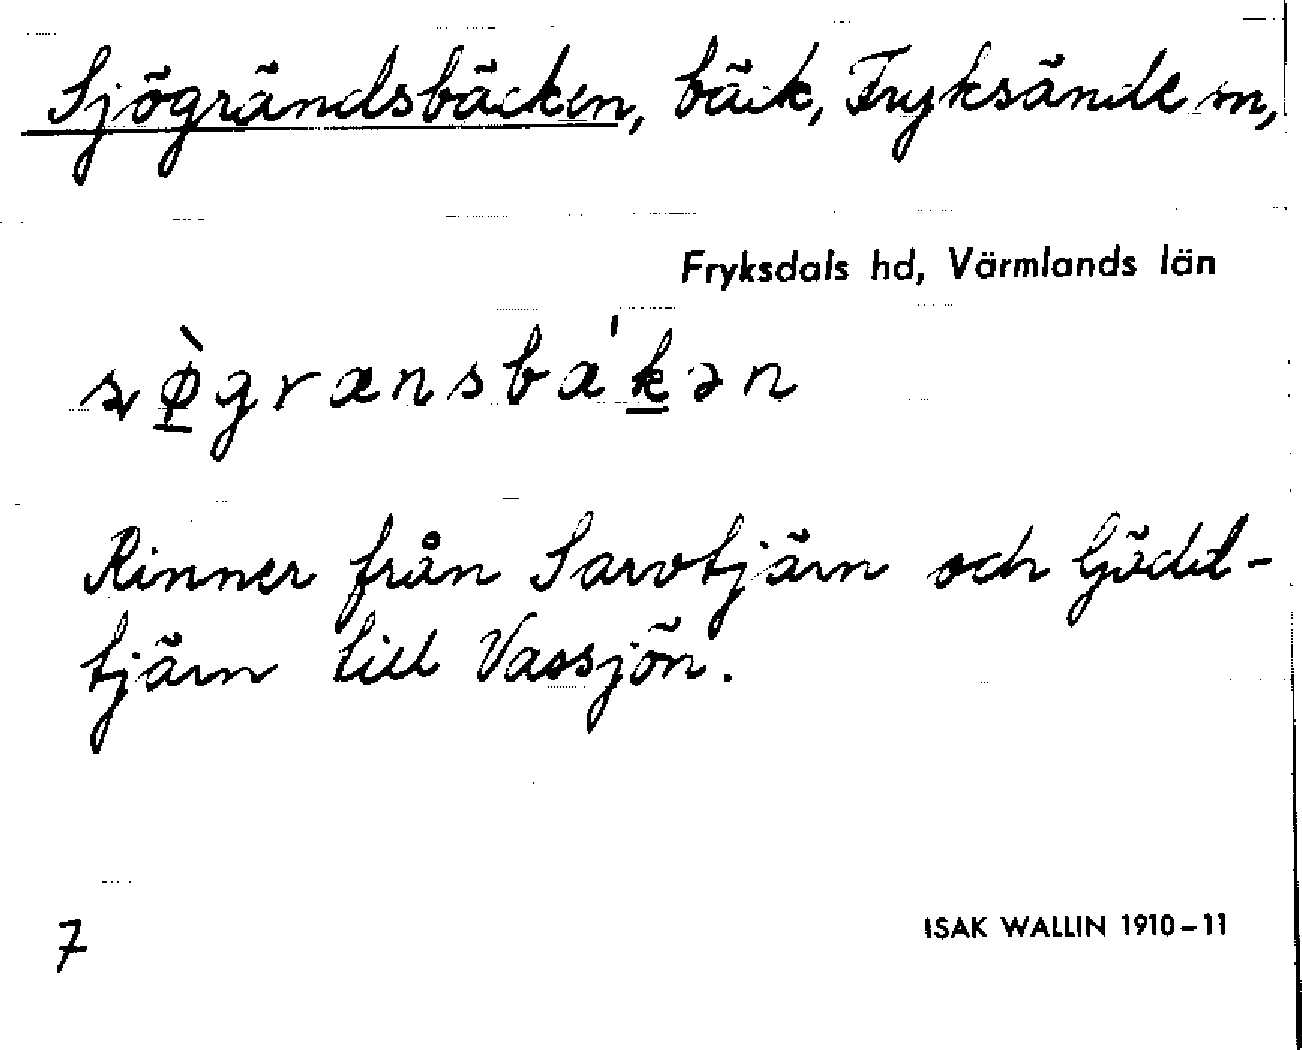 Sjögrändsbäcken, bäck, Fryksände sn,
Fryksdals hd, Värmlands län
Rinner från Sarvtjärn och Gädd-
tjärn till Vassjön.
7
ISAK WALLIN 1910-11